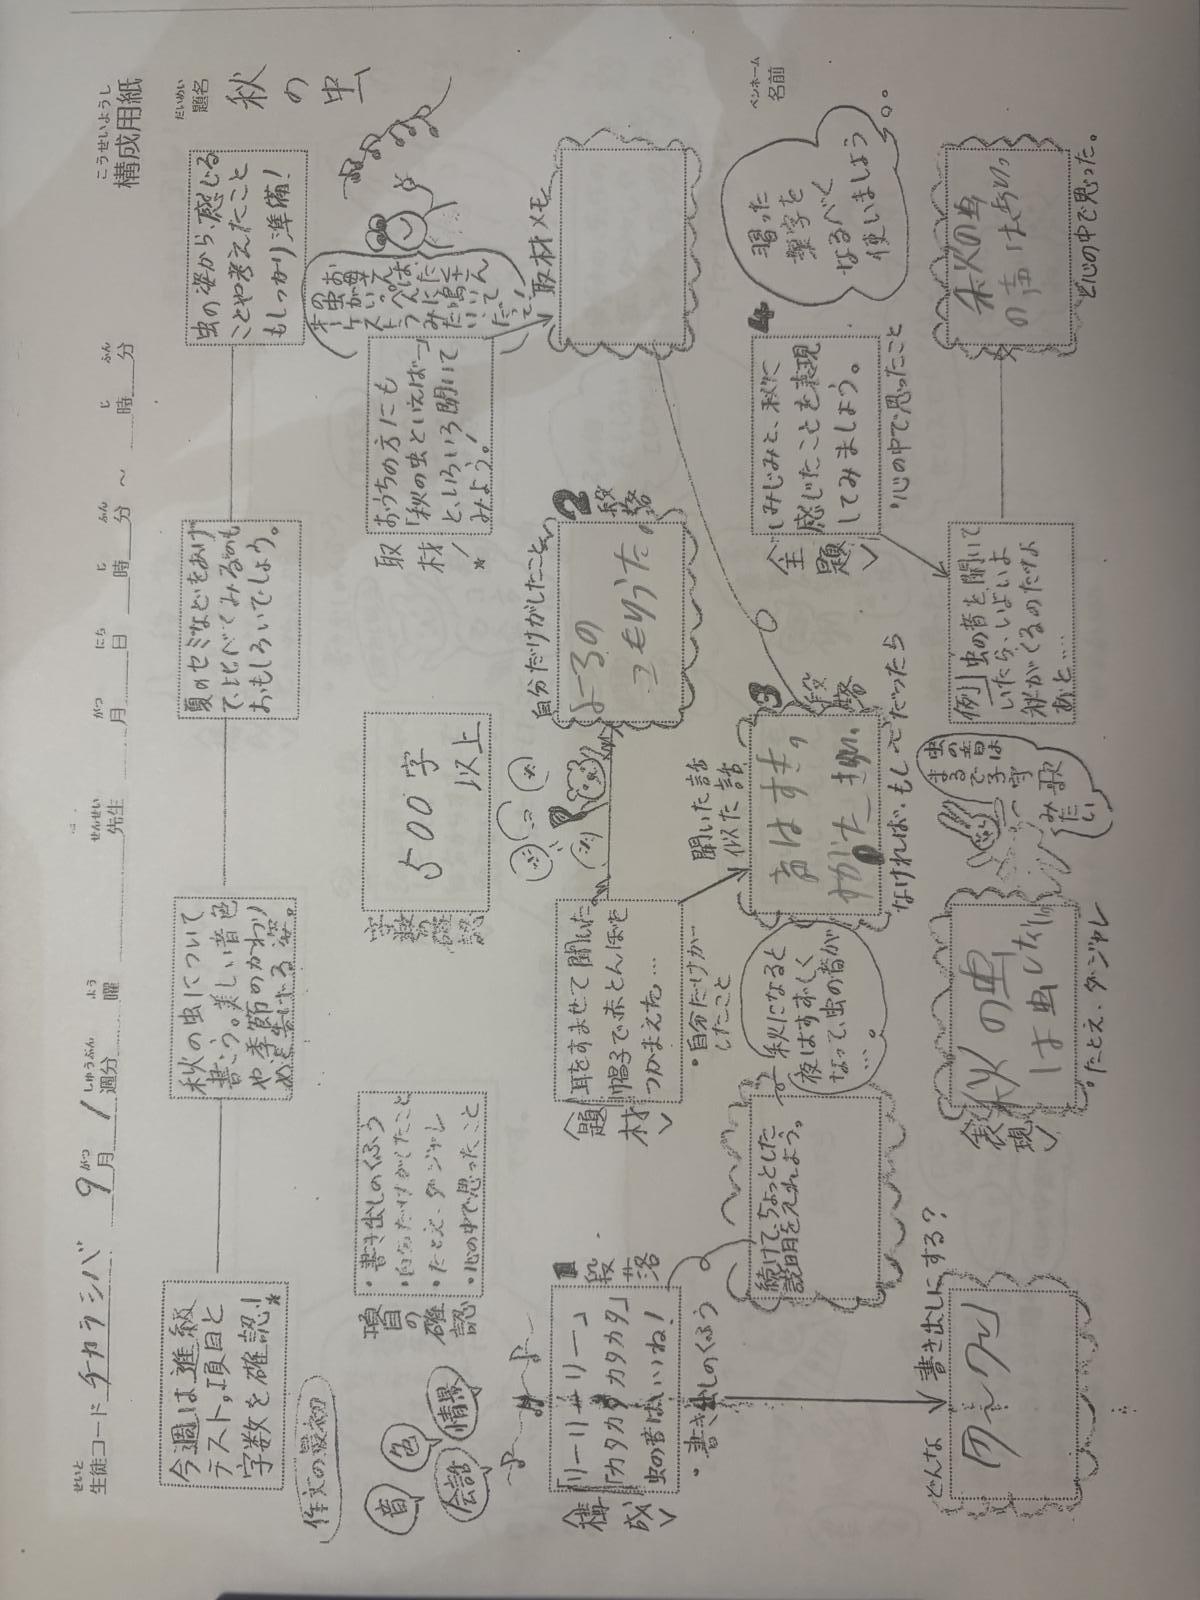 構成用紙
こうせいようし
生徒コード チカラシバ 9月1週分 曜 先生 月 日 時 分 ～ 時 分
せいと がつ しゅうぶん よう せんせい がつ にち じ ふん じ ふん
題名 秋の虫
だいめい
今週は進級
テスト。項目と
字数を確認！
秋の虫について
書こう。美しい音色
や季節のかわり
夏のセミなどをあげ
て、比べてみるのも
おもしろいでしょう。
虫の姿から、感じる
ことや考えたこと
もしっかり準備！
作文の最初
音
色
会話
情景
項目の確認
・書き出しのくふう
・自分だけがしたこと
・たとえ、ダジャレ
・心の中で思ったこと
字数の確認
500字
以上
取材！
おうちの方にも
「秋の虫といえば…」
と、いろいろ聞いて
みよう！
取材メモ
〈構成〉
1段落
「リーリーリー」
「カタカタカタカタ」
虫の音はいいね！
・書き出しのくふう
〈題材〉
耳をすませて聞いた
帽子で赤とんぼを
つかまえた…
・自分だけが
したこと
自分だけがしたこと
2段落
よーろの
コモリうた。
続けて、ちょっとした
説明を入れよう。
秋になると
夜はすずしく
なって、虫の音が
…。
聞いた話
似た話
3段落
なければ、もし〜だったら
〈主題〉
4
しみじみと、秋に
感じたことを表現
してみましょう。
・心の中で思ったこと
習った
漢字を
なるべく
使いましょう
ペンネーム
名前
どんな書き出しにする？
〈表現〉
秋の虫
は虫
・たとえ、ダジャレ
虫の音は
まるで子守
歌
みたい
例 虫の音を聞いて
いたら、いよいよ
秋がくるのだな
あと…
秋の虫
の声は
と心の中で思った。